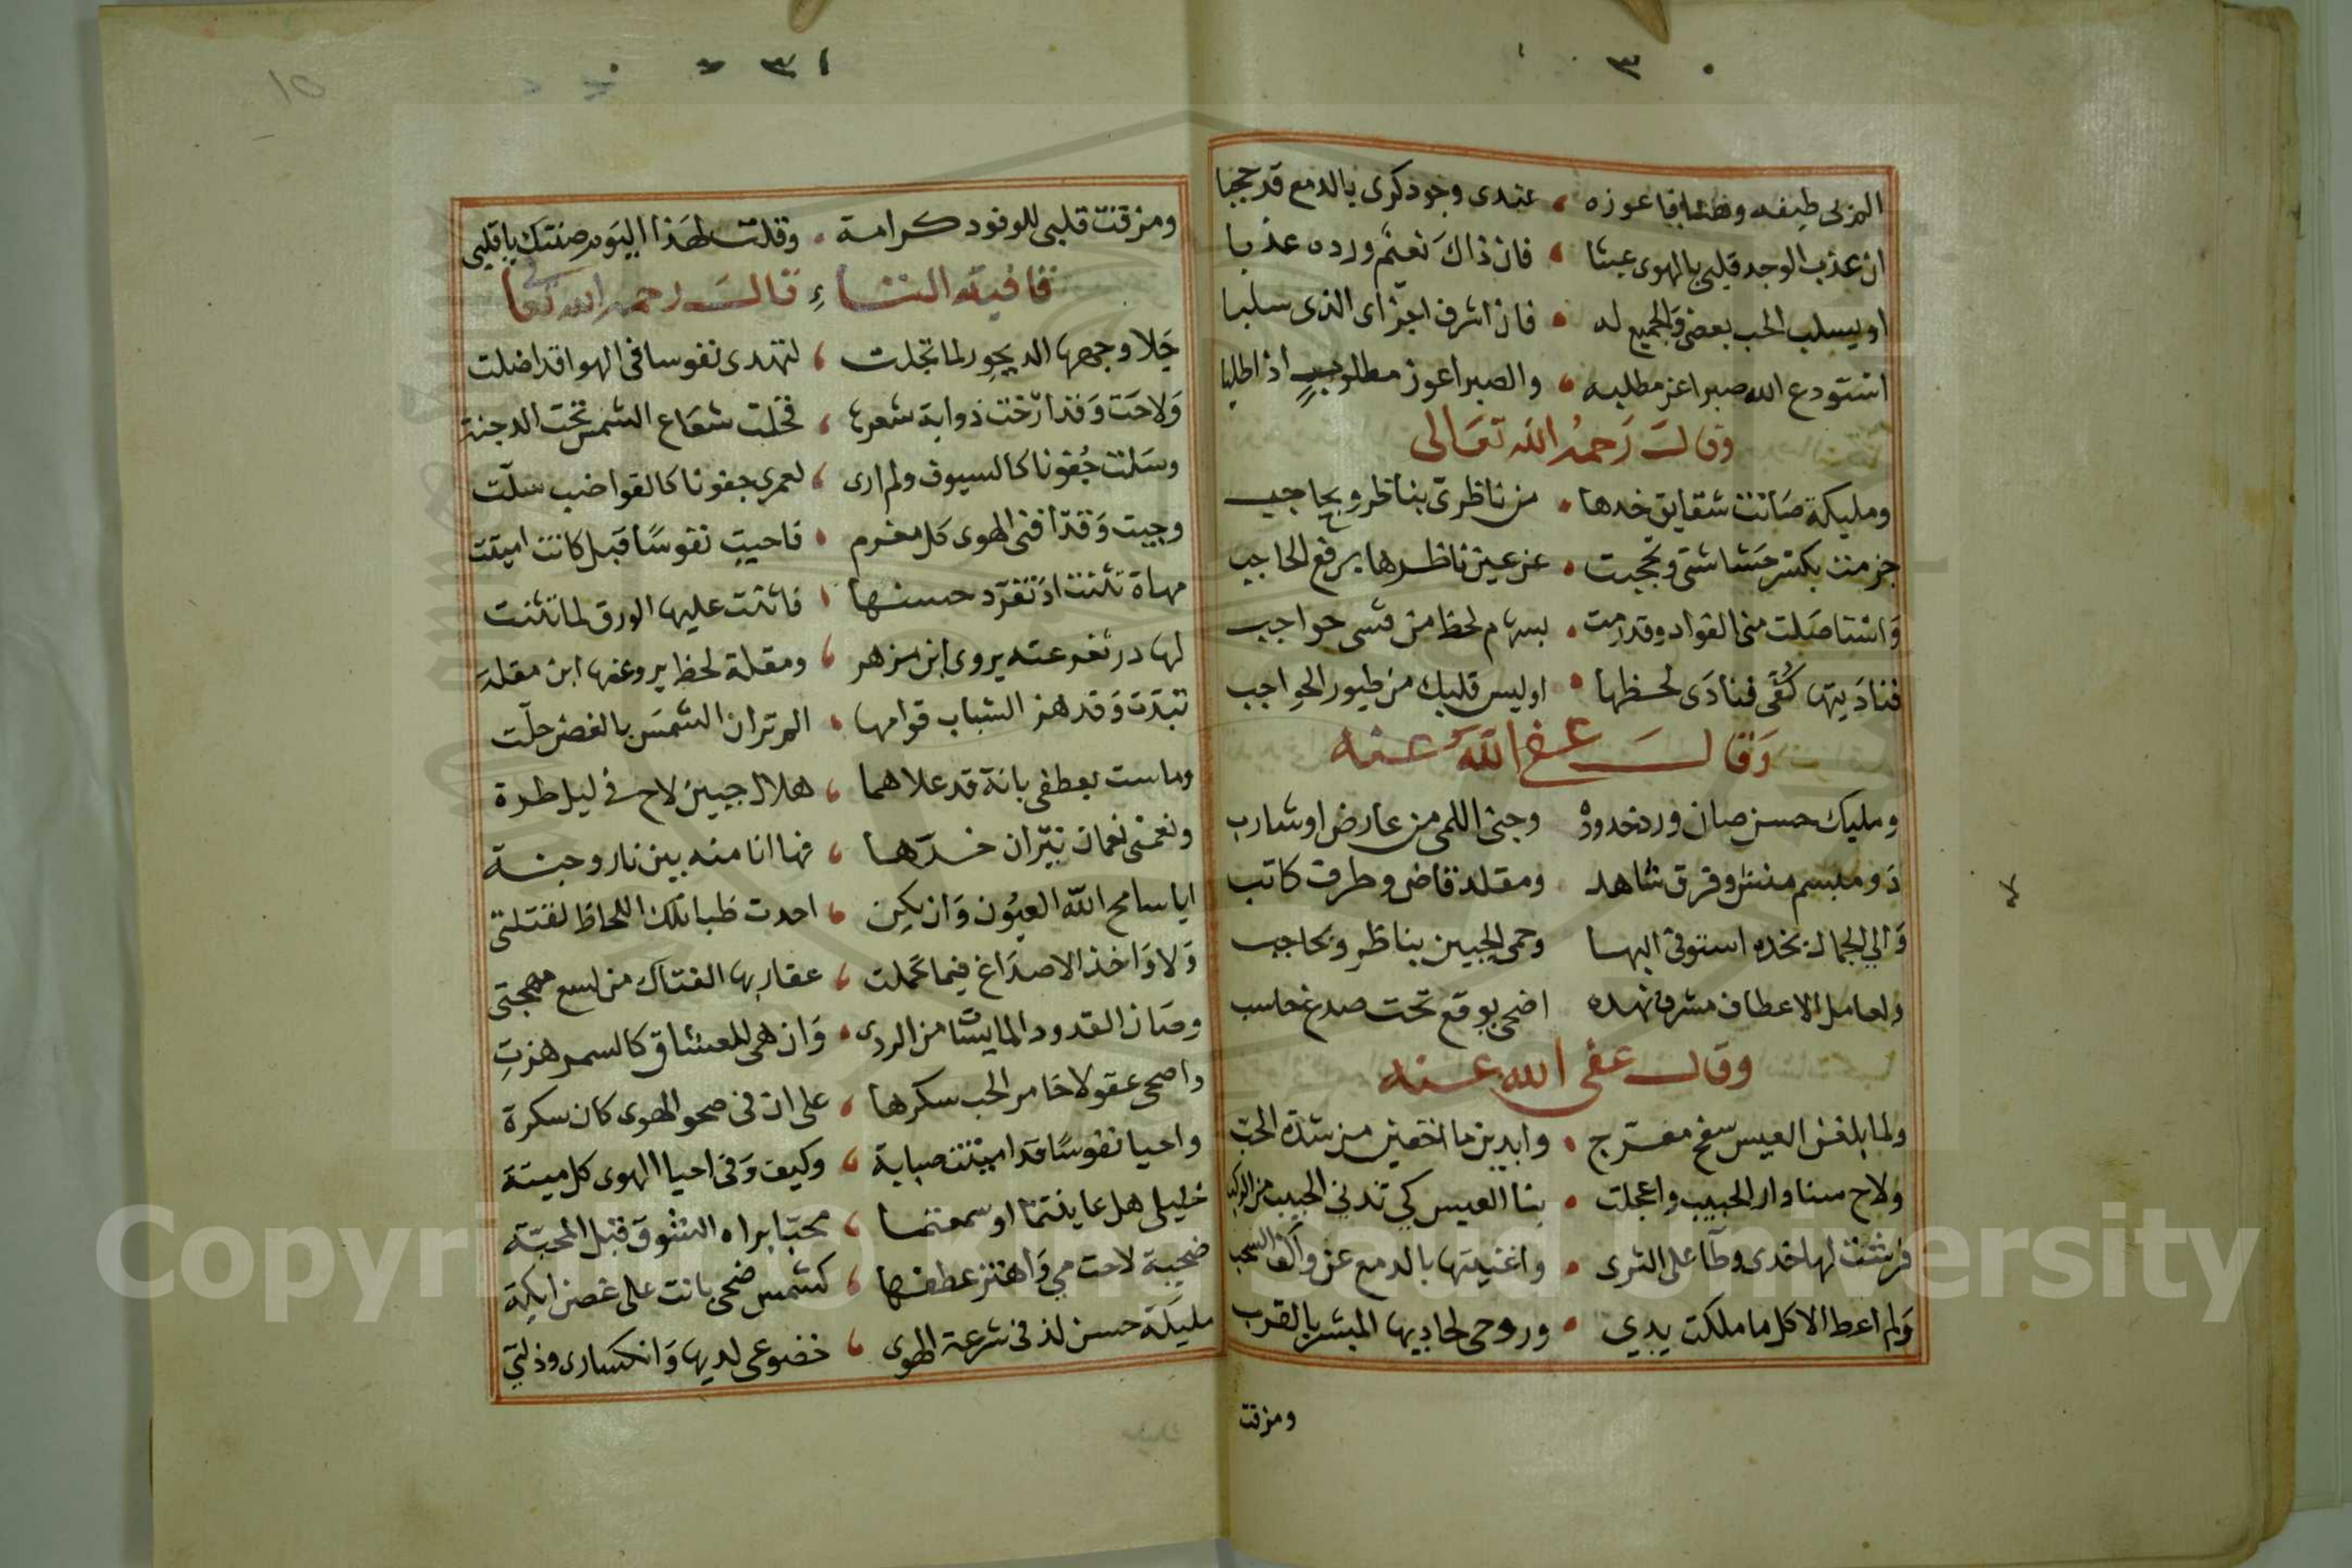 ٣٠
عندى وجوذكرى بالدمع قد حجبا
ان عذب الوجد قلبى بالهوى عبثا فان ذاك نعيّم ورده عذبا
او يسلب الحب بعضى فالجميع له فان اشرف اجزاى الذى سلبا
استودع الله صبرا عز مطلبه والصبر اعوز مطلوب اذا طلبا
وقال رحمه الله تعالى
ومليكة صانت شقايق خدها من ناظرى بناظر وبحاجب
جزمت بكسر حشاشتى وتحجبت عن عين ناظرها برفع الحاجب
واستاصلت منى الفواد وقد رمت بسهام لحظ من قسى حواجب
فناديتها كفى فنادى لحظها اوليس قلبك من طيور الحواجب
وقال عفى الله عنه
ومليك حسن صان ورد خدوده وجنى اللمى من عارض او شارب
ذو مبسم منش وفرق شاهد ومقلة قاض وطرف كاتب
والي الجمال بخده استوفى البها وحمى الجبين بناظر وبحاجب
ولعامل الاعطاف مشرف نهده اضحى يوقع تحت صدغ حاسب
وقال عفى الله عنه
ولما بلغن العيس سفح مفرج وابدين ما اخفين من شدة الحب
ولاح سنا دار الحبيب واعجلت بنا العيس كي تدني الحبيب من الركب
فرشت لها خدى وطآ على الثرى واغنيتها بالدمع عن واكف السحب
ولم اعط الا كل ما ملكت يدي وروحى لحاديها المبشر بالقرب
ومزقت
٣١
ومزقت قلبى للوفود كرامة وقلت لهذا اليوم صنتك يا قلبى
قافية التاء قال رحمه الله تعالى
جلا وجهها الديجور لما تجلت لتهدى نفوسا فى الهوا قد اضلت
ولاحت وقد ارخت ذوابة شعرها فخلت شعاع الشمس تحت الدجنة
وسلت جفونا كالسيوف ولم ارى لعمرى جفونا كالقواضب سلت
وجيت وقد افنى الهوى كل مغرم فاحيت نفوسًا قبل كانت اميتت
مهاة تثنت اذ تفرد حسنها فاثنت عليها الورق لما تثنت
لها در ثغر عنه يروى ابن مزهر ومقلة لحظ يروعنها ابن مقلة
تبدت وقد هز الشباب قوامها الم تر ان الشمس بالغصن حلت
وماست بعطفى بانة قد علاهما هلال جبين لاح فى ليل طرة
ونعمنى نعمان نيران خدها فها انا منه بين نار وجنة
ايا سامح الله العيون وان يكن احدت ظبا تلك اللحاظ لقتلتى
ولا واخذ الاصداغ فيما عملت عقاربها الفتاك من لسع مهجتى
وصان القدود المايسات من الردى وان هى للعشاق كالسمر هزت
واصحى عقولا خامر الحب سكرها على ان فى صحو الهوى كان سكرة
واحيا نفوسًا قد اميتت صبابة وكيف وفى احيا الهوى كل ميتة
خليلى هل عاينتما او سمعتما محبّا براه الشوق قبل المحبة
ضحيبة لاحت مي واهتز عطفها كشمس ضحى بانت على غصن ايكة
مليكة حسن لذ فى شرعة الهوى خضوعى لديها وانكسارى وذلتى
Copyright © King Saud University